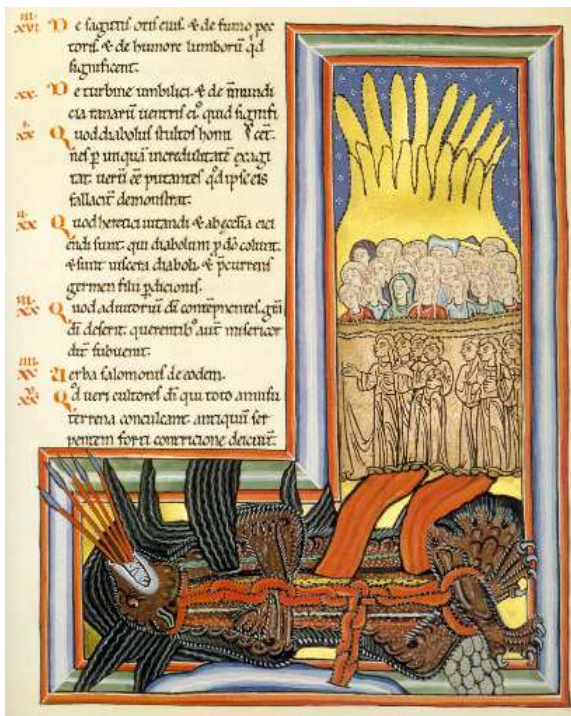 iii.
xvi. De sagittis oris eius. & de fumo pec
toris. & de humore lumborū qd
significent.
xx. De turbine umbilici. & de īmundi
cia uentris ei' quid signifi
i.
xx Quod diabolus stultos homi cet.
nes p incredulitatē exagi
tat. uerū ēē putantes qd ipse eis
fallacit demonstrat.
ii.
xx Quod heretici uitandi & ab ecclīa eici
endi sunt. qui diabolum p dō colunt.
& sunt uiscera diaboli & pcurrens
germen filii pdicionis.
iii.
xx Quod adiutoriū dī contēpnentes. grā
dī deserit. querentib' autē misericor
dit subuenit.
iiii.
xx Uerba salomonis de eodem.
v.
xx Qd ueri cultores dī qui toto annisu
terrena conculcant. antiquū ser
pentem forti contricione deiciūt.